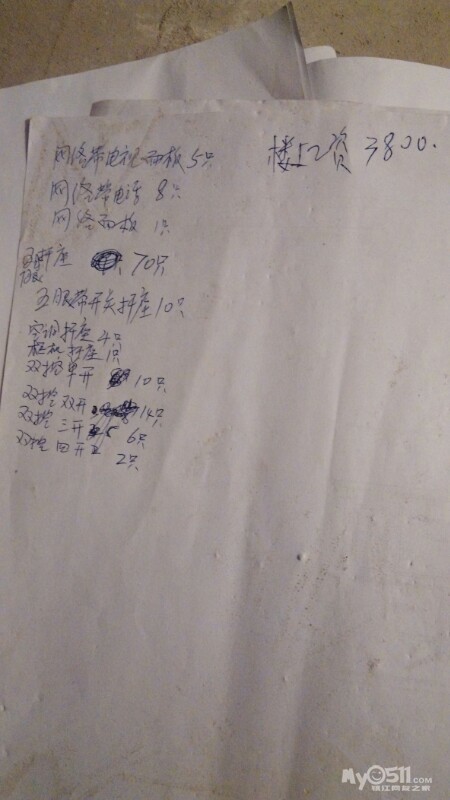 网络带电视面板5只
楼上工资3800.
网络带电话8只
网络面板1只
插座70只
五眼带开关插座10只
空调插座4只
柜机插座1只
双控单开10只
双控双开14只
双控三开6只
双控四开2只
My0511.COM
镇江网友之家